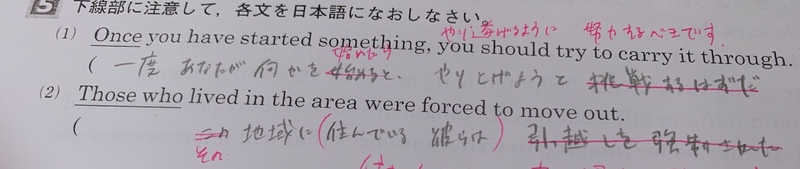 5 下線部に注意して，各文を日本語になおしなさい。
やり遂げるように 努力するべきです.
(1) Once you have started something, you should try to carry it through.
始めたら
( 一度 あなたが 何かを 始めると、 やりとげようと 挑戦するはずだ
(2) Those who lived in the area were forced to move out.
( この 地域に(住んでいる 彼らは) 引っ越しを 強制された
その